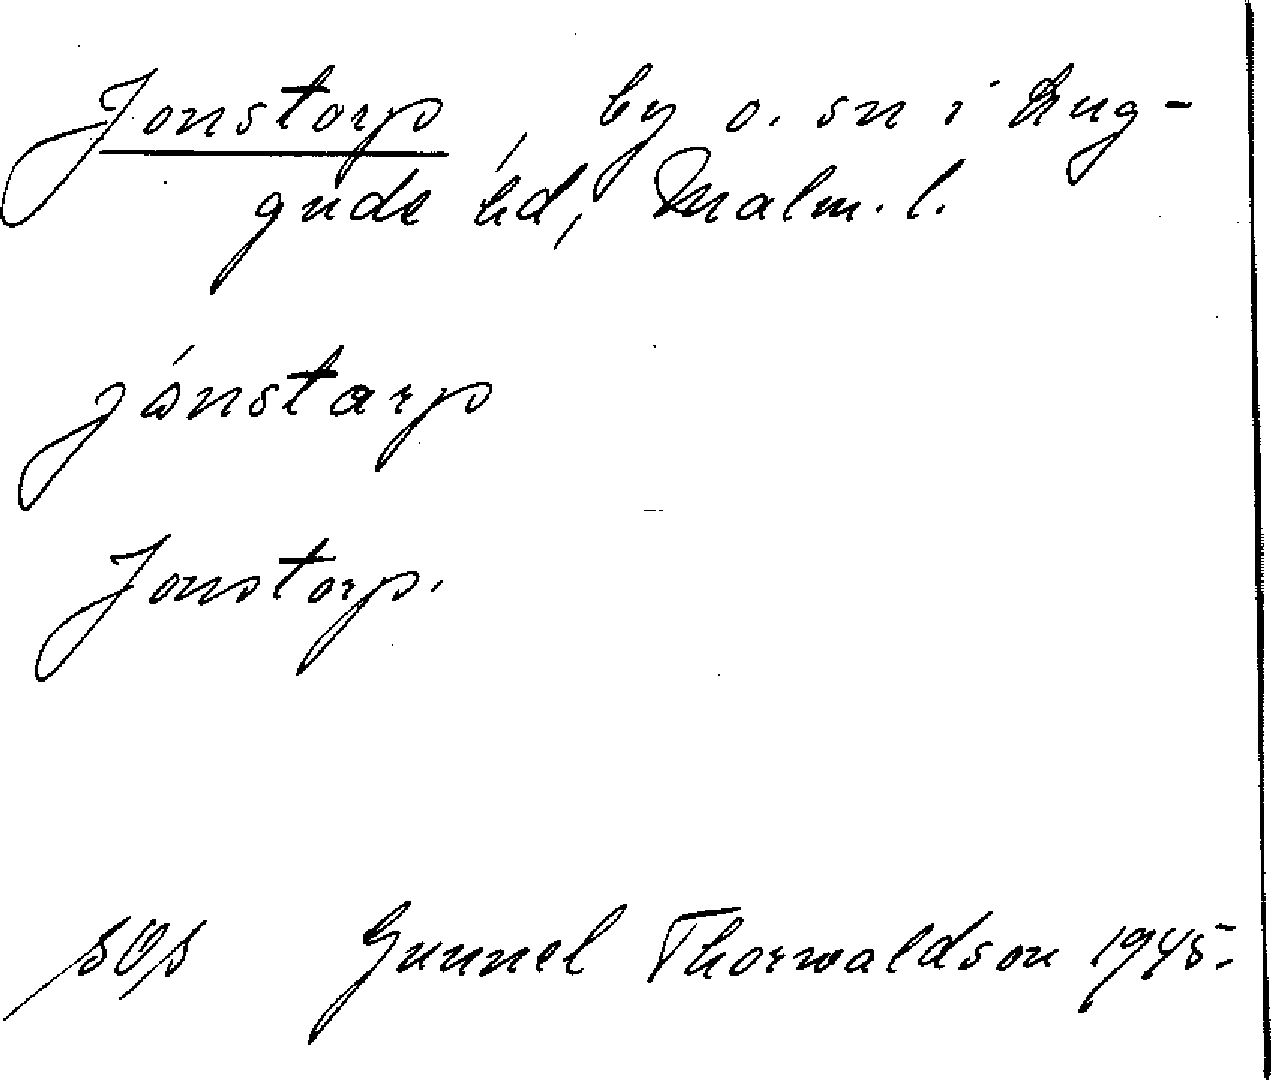 Jonstorp, by o. sn i Lug-
gude hd, Malm. l.
jónstarp
Jonstorp.
SOS Gunnel Thorwaldson 1945.